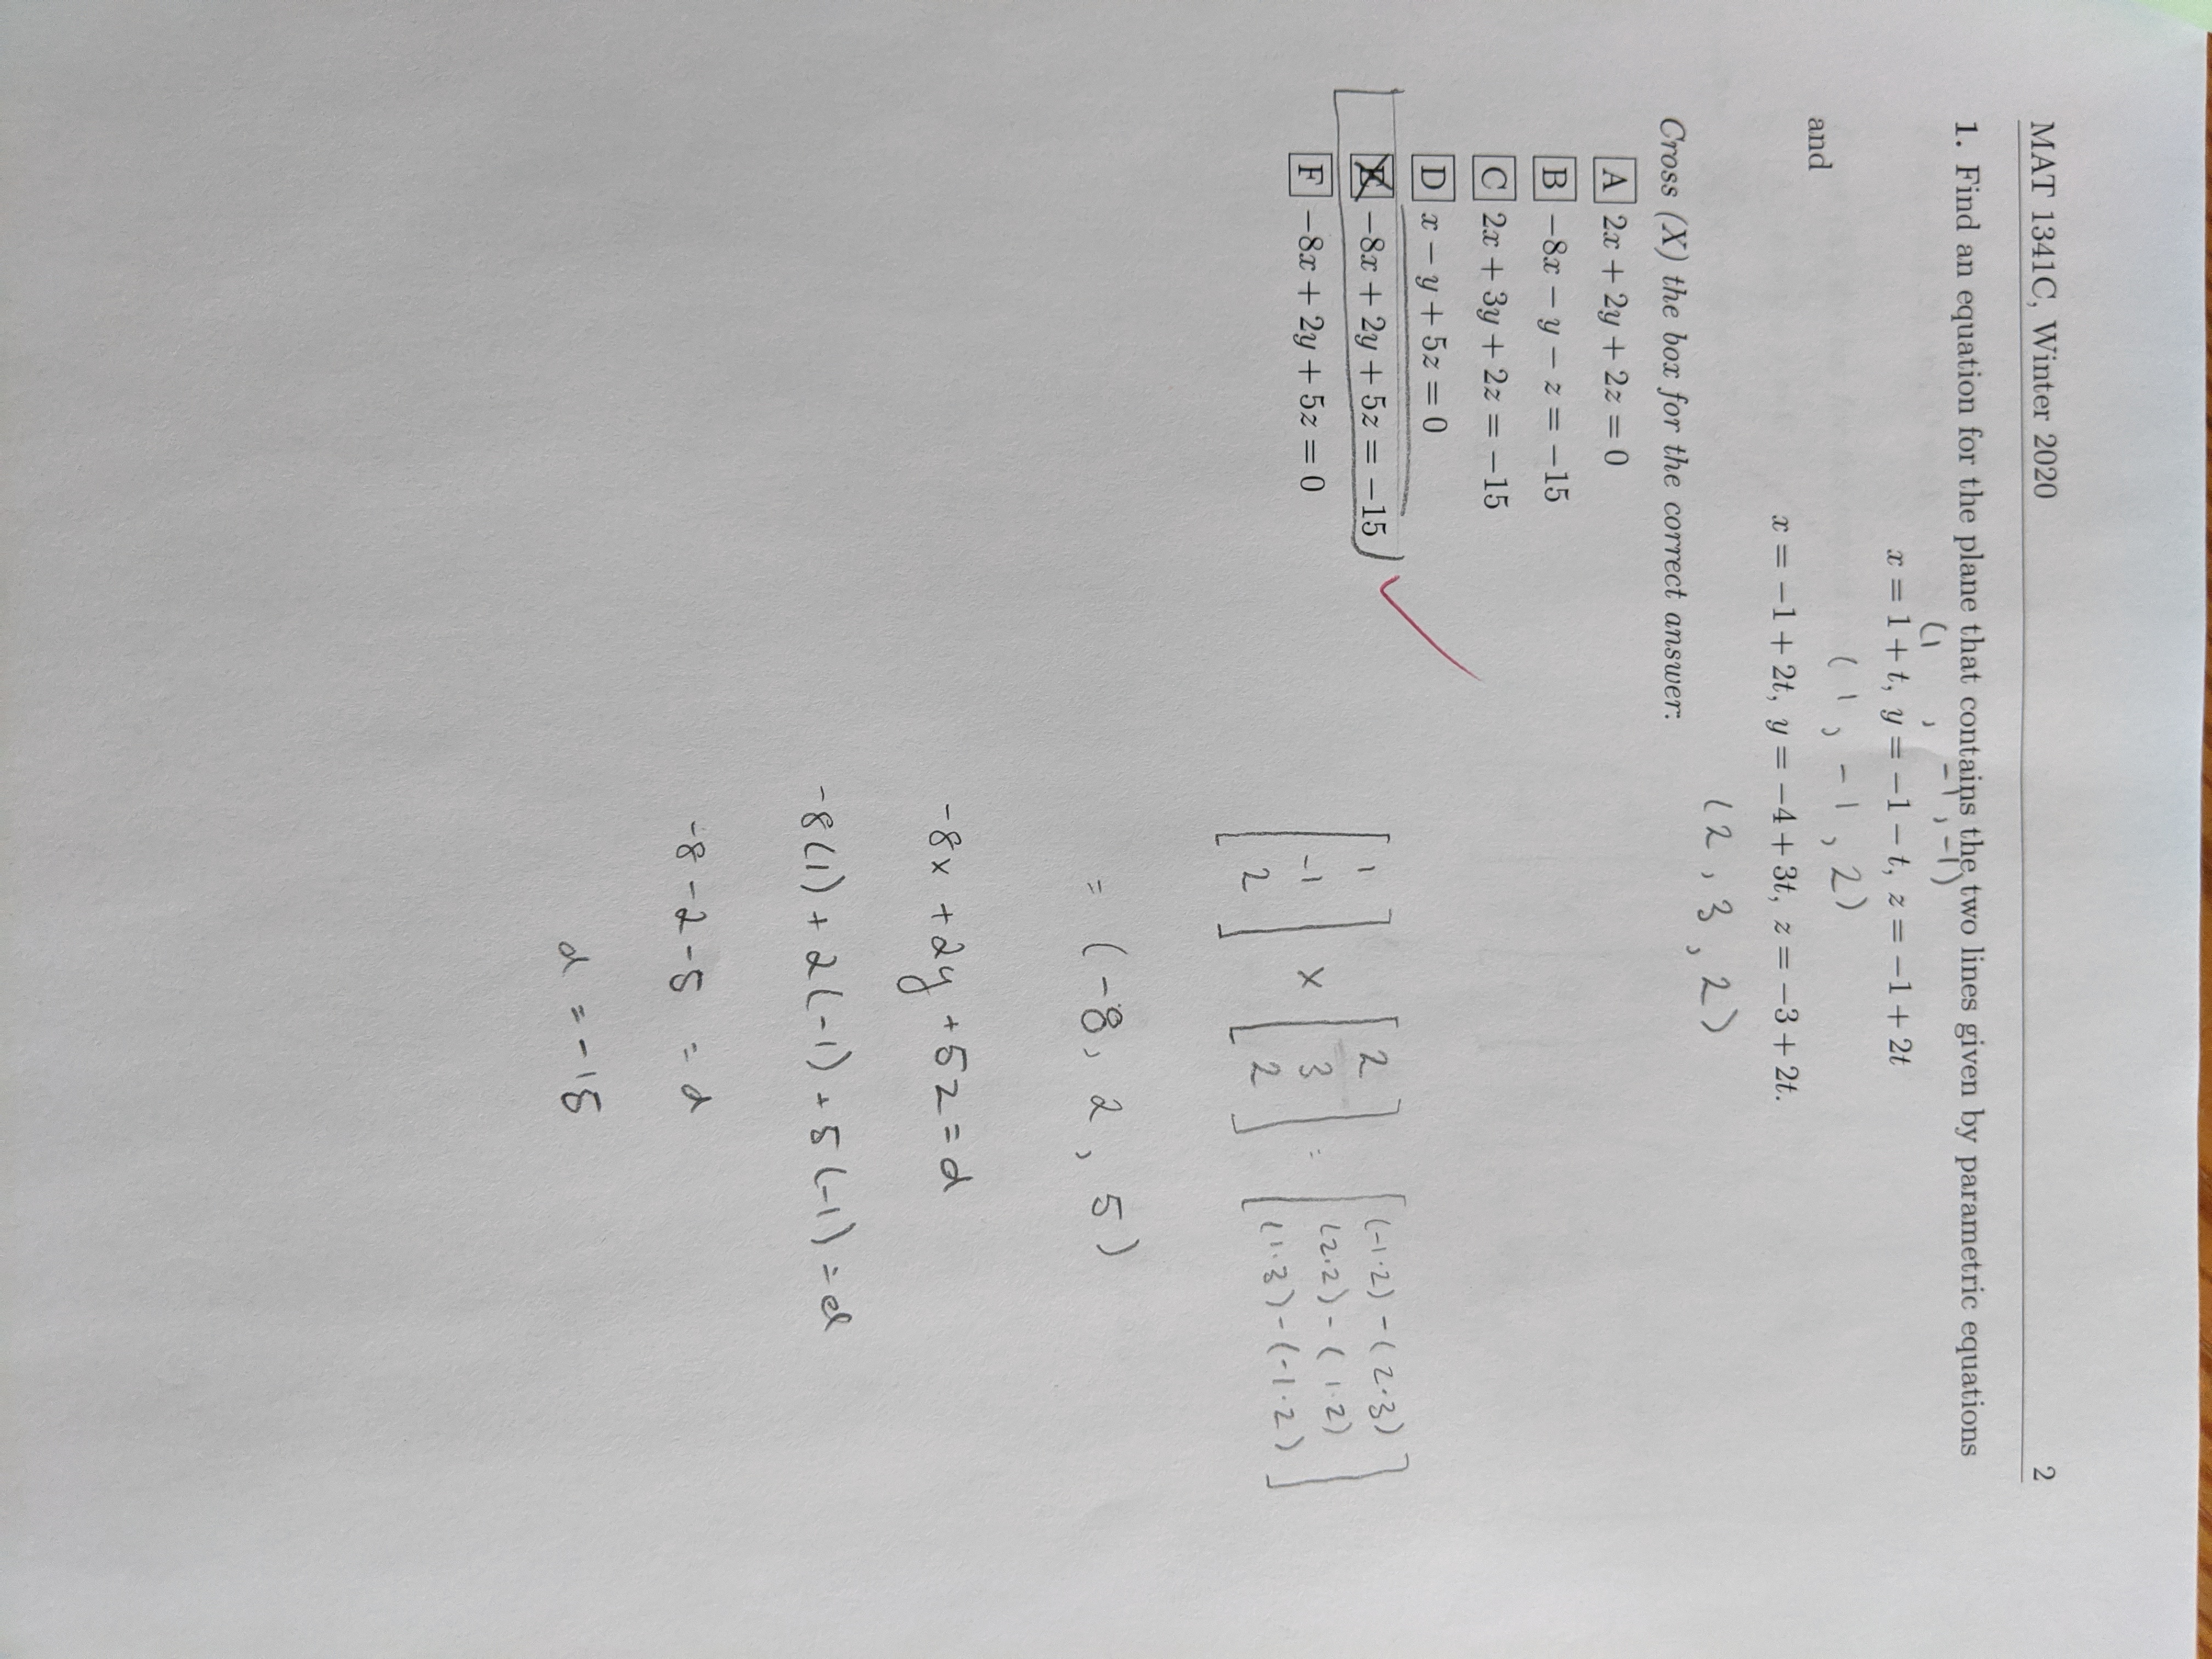 MAT 1341C, Winter 2020 2
1. Find an equation for the plane that contains the two lines given by parametric equations
(1 , -1, -1)
x = 1 + t, y = −1 − t, z = −1 + 2t
(1, -1, 2)
and
x = −1 + 2t, y = −4 + 3t, z = −3 + 2t.
(2, 3, 2)
Cross (X) the box for the correct answer:
A 2x + 2y + 2z = 0
B −8x − y − z = −15
C 2x + 3y + 2z = −15
D x − y + 5z = 0
E −8x + 2y + 5z = −15
F −8x + 2y + 5z = 0
[1 -1 2] × [2 3 2] = [(-1·2) - (2·3) (2·2) - (1·2) (1·3) - (-1·2)]
= (-8, 2, 5)
-8x + 2y + 5z = d
-8(1) + 2(-1) + 5(-1) = d
-8 - 2 - 5 = d
d = -15